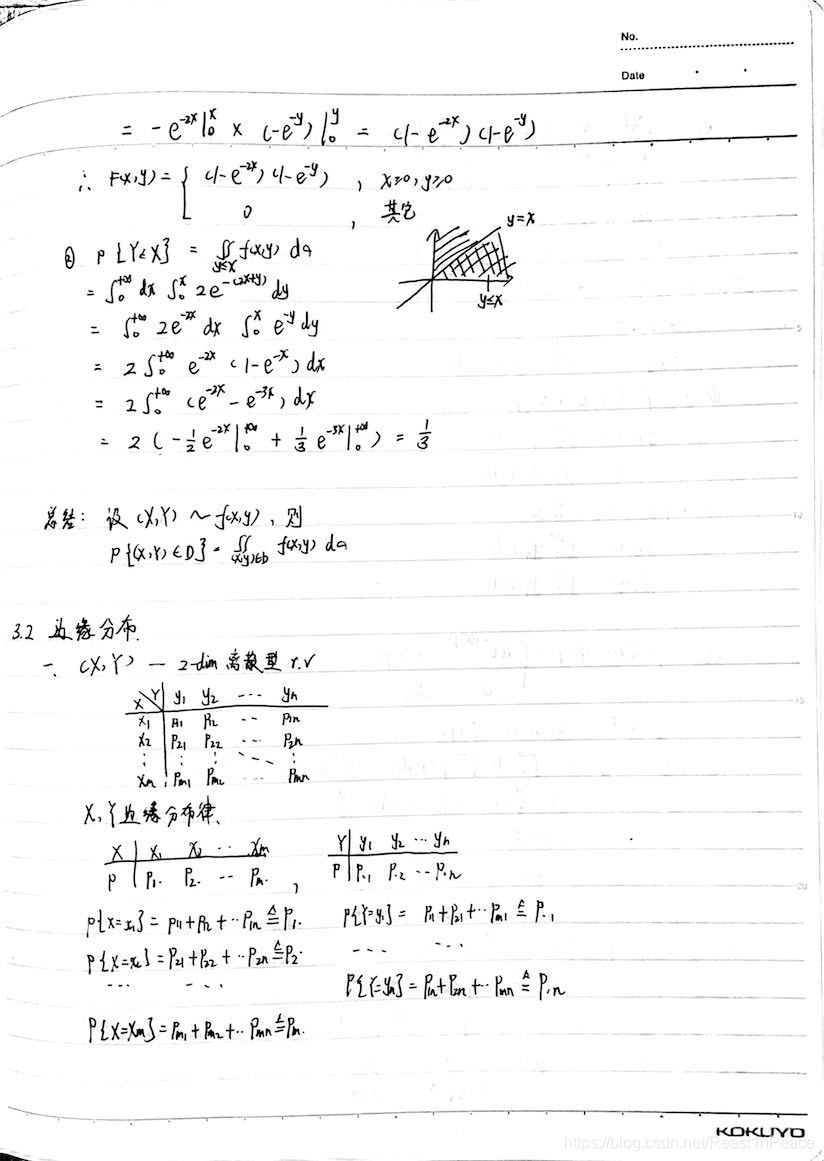 No.
Date
= -e^{-2x}|_0^x × (-e^{-y})|_0^y = (1-e^{-2x})(1-e^{-y})
∴ F(x,y) = { (1-e^{-2x})(1-e^{-y}) , x≥0, y≥0
0 , 其它
② P{Y≤X} = ∬_{y≤x} f(x,y) dσ
y=x
y≤x
= ∫_0^{+∞} dx ∫_0^x 2e^{-(2x+y)} dy
= ∫_0^{+∞} 2e^{-2x} dx ∫_0^x e^{-y} dy
= 2∫_0^{+∞} e^{-2x} (1-e^{-x}) dx
= 2∫_0^{+∞} (e^{-2x} - e^{-3x}) dx
= 2 ( -1/2 e^{-2x}|_0^{+∞} + 1/3 e^{-3x}|_0^{+∞} ) = 1/3
总结: 设 (X,Y) ~ f(x,y), 则
P{(X,Y)∈D} = ∬_{(x,y)∈D} f(x,y) dσ
3.2 边缘分布.
一、(X,Y) — 2-dim 离散型 r.v
X\Y y₁ y₂ ... yₙ
x₁ p₁₁ p₁₂ ... p₁ₙ
x₂ p₂₁ p₂₂ ... p₂ₙ
⋮ ⋮ ⋮ ...
xₘ pₘ₁ pₘ₂ ... pₘₙ
X, Y边缘分布律.
X x₁ x₂ ... xₘ
P P₁. P₂. ... Pₘ. ,
Y y₁ y₂ ... yₙ
P P.₁ P.₂ ... P.ₙ
P{X=x₁} = p₁₁+p₁₂+...p₁ₙ ≜ P₁.
P{Y=y₁} = p₁₁+p₂₁+...pₘ₁ ≜ P.₁
P{X=x₂} = p₂₁+p₂₂+...p₂ₙ ≜ P₂.
... ...
... ...
P{Y=yₙ} = p₁ₙ+p₂ₙ+...pₘₙ ≜ P.ₙ
P{X=xₘ} = pₘ₁+pₘ₂+...pₘₙ ≜ Pₘ.
5
10
15
20
KOKUYO
https://blog.csdn.net/ReastInPeace